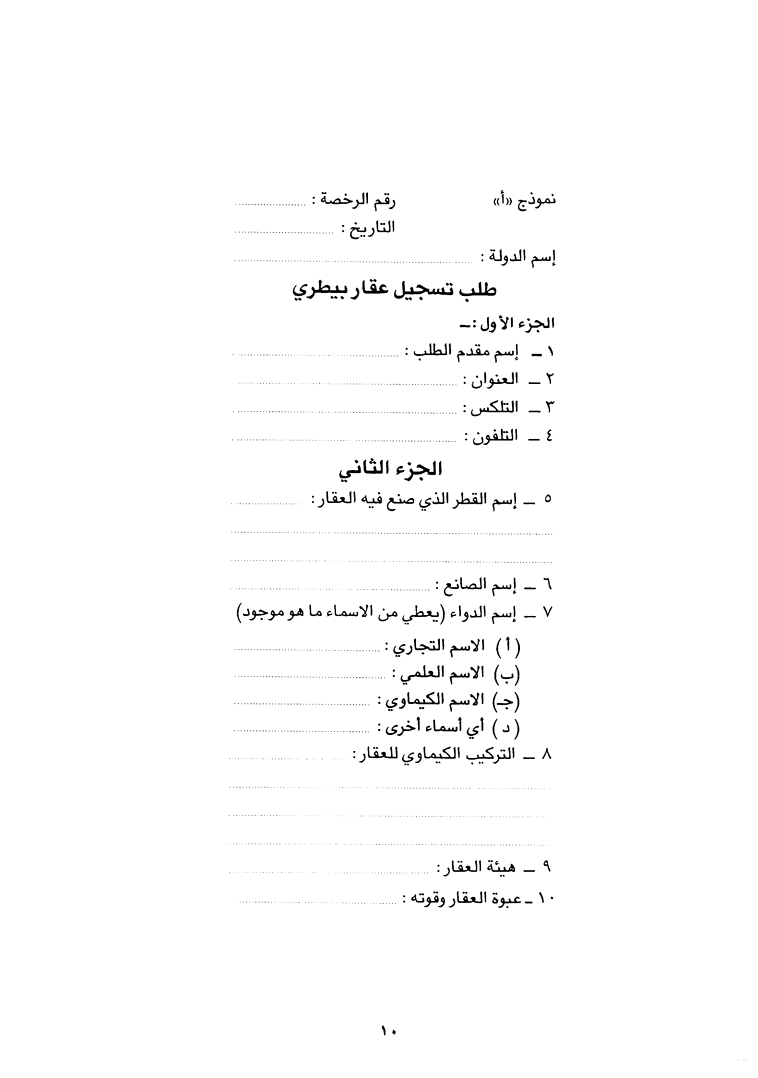 نموذج «أ» رقم الرخصة : ........................
التاريخ : ........................
إسم الدولة : ........................
طلب تسجيل عقار بيطري
الجزء الأول :ــ
١ ــ إسم مقدم الطلب : ........................
٢ ــ العنوان : ........................
٣ ــ التلكس : ........................
٤ ــ التلفون : ........................
الجزء الثاني
٥ ــ إسم القطر الذي صنع فيه العقار : ........................
........................
........................
٦ ــ إسم الصانع : ........................
٧ ــ إسم الدواء (يعطي من الاسماء ما هو موجود)
( أ ) الاسم التجاري : ........................
(ب) الاسم العلمي : ........................
(جـ) الاسم الكيماوي : ........................
( د ) أي أسماء أخرى : ........................
٨ ــ التركيب الكيماوي للعقار : ........................
........................
........................
........................
٩ ــ هيئة العقار : ........................
١٠ ــ عبوة العقار وقوته : ........................
١٠